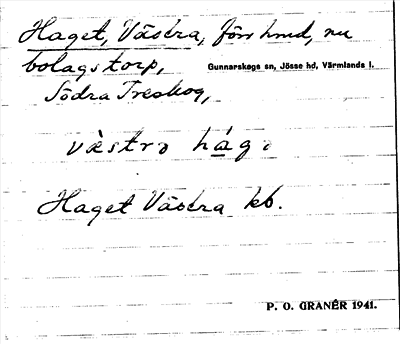 Haget, Västra, förr hmd, nu
bolagstorp,
Gunnarskogs sn, Jösse hd, Värmlands l.
Södra Treskog,
Haget Västra kb.
P. O. GRANÉR 1941.